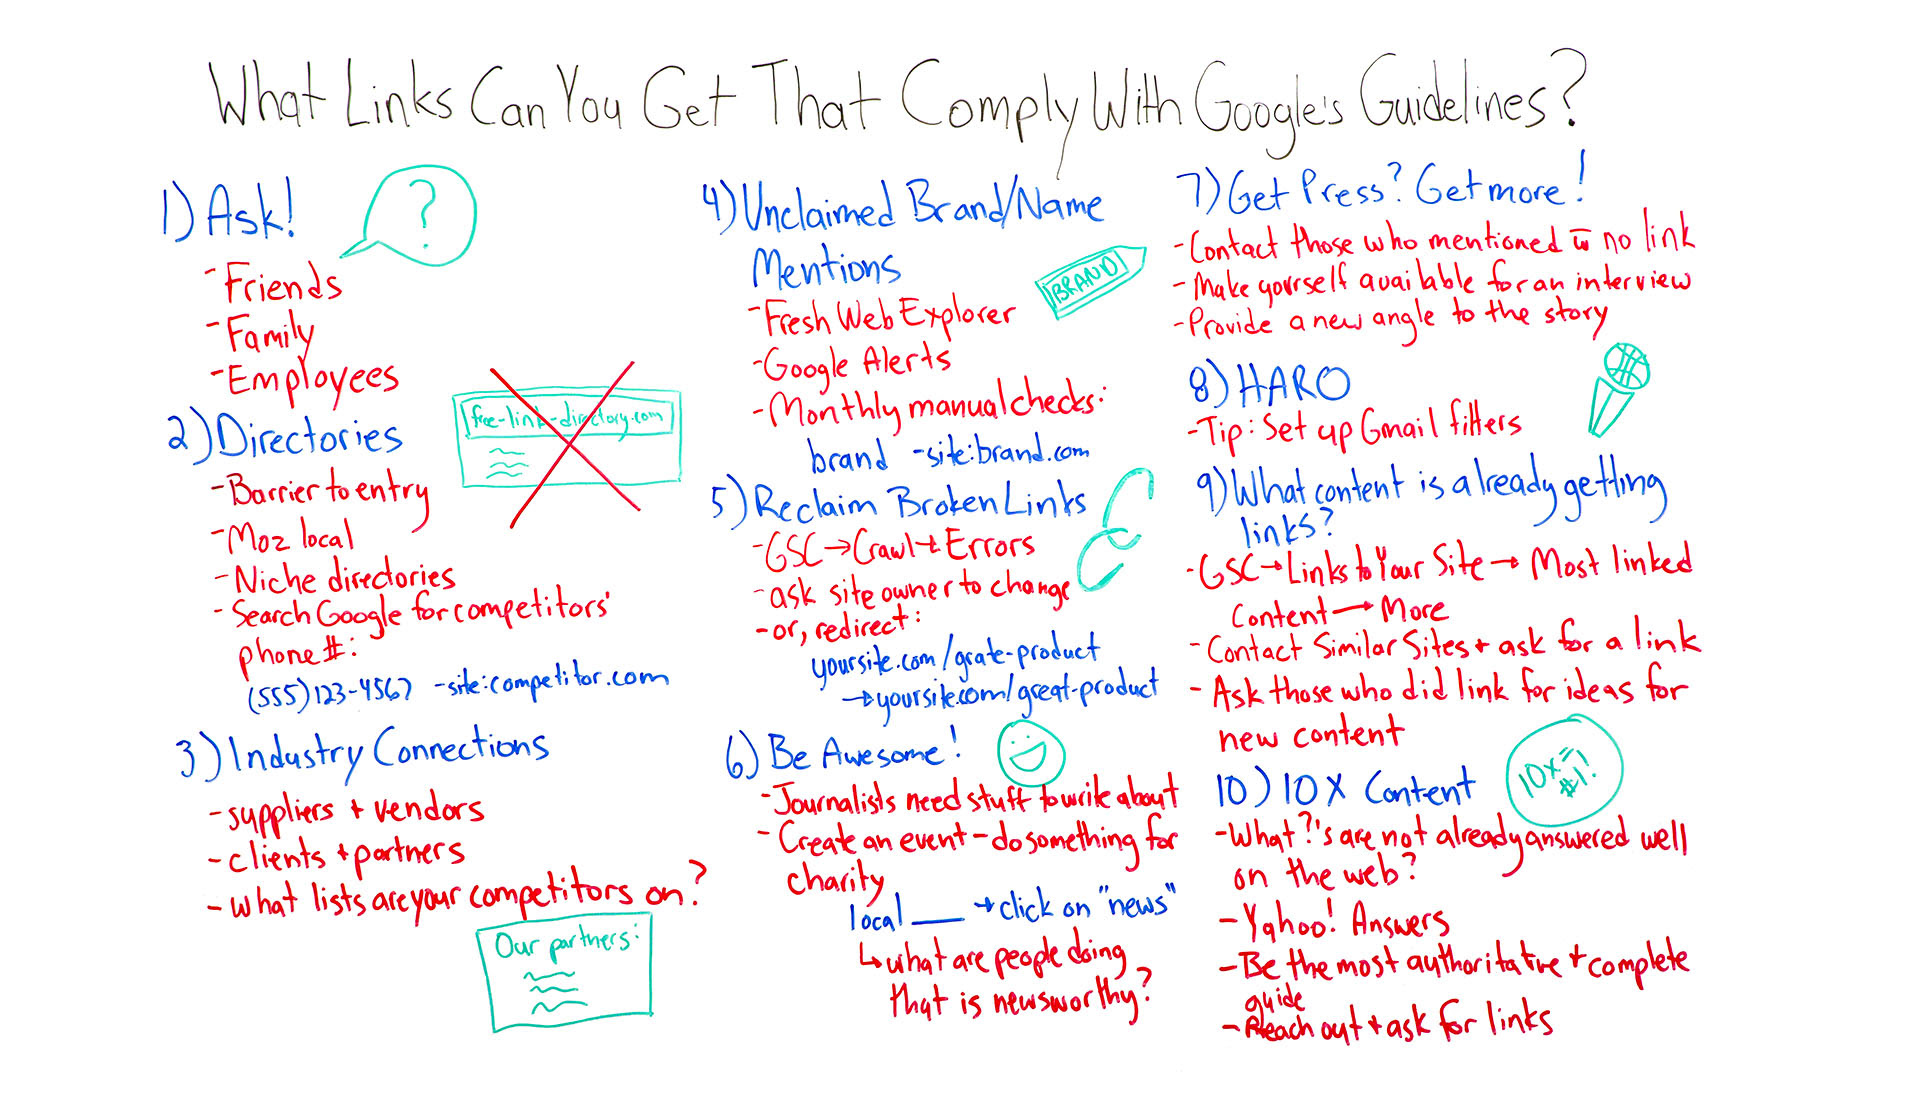 What Links Can You Get That Comply With Google's Guidelines?
1) Ask!
?
- Friends
- Family
- Employees
2) Directories
free-link-directory.com
- Barrier to entry
- Moz local
- Niche directories
- Search Google for competitors'
phone #:
(555)123-4567 -site:competitor.com
3) Industry Connections
- suppliers + vendors
- clients + partners
- what lists are your competitors on?
Our partners:
4) Unclaimed Brand/Name
Mentions
BRAND
- Fresh Web Explorer
- Google Alerts
- Monthly manual checks:
brand -site:brand.com
5) Reclaim Broken Links
- GSC → Crawl → Errors
- ask site owner to change
- or, redirect:
yoursite.com/grate-product
→ yoursite.com/great-product
6) Be Awesome!
- Journalists need stuff to write about
- Create an event - do something for
charity
local ___ → click on "news"
↳ what are people doing
that is newsworthy?
7) Get Press? Get more!
- Contact those who mentioned w̅ no link
- Make yourself available for an interview
- Provide a new angle to the story
8) HARO
- Tip: Set up Gmail filters
9) What content is already getting
links?
- GSC → Links to Your Site → Most linked
Content → More
- Contact Similar Sites + ask for a link
- Ask those who did link for ideas for
new content
10) 10X Content
10x =
#1!
- What ?'s are not already answered well
on the web?
- Yahoo! Answers
- Be the most authoritative + complete
guide
- Reach out + ask for links